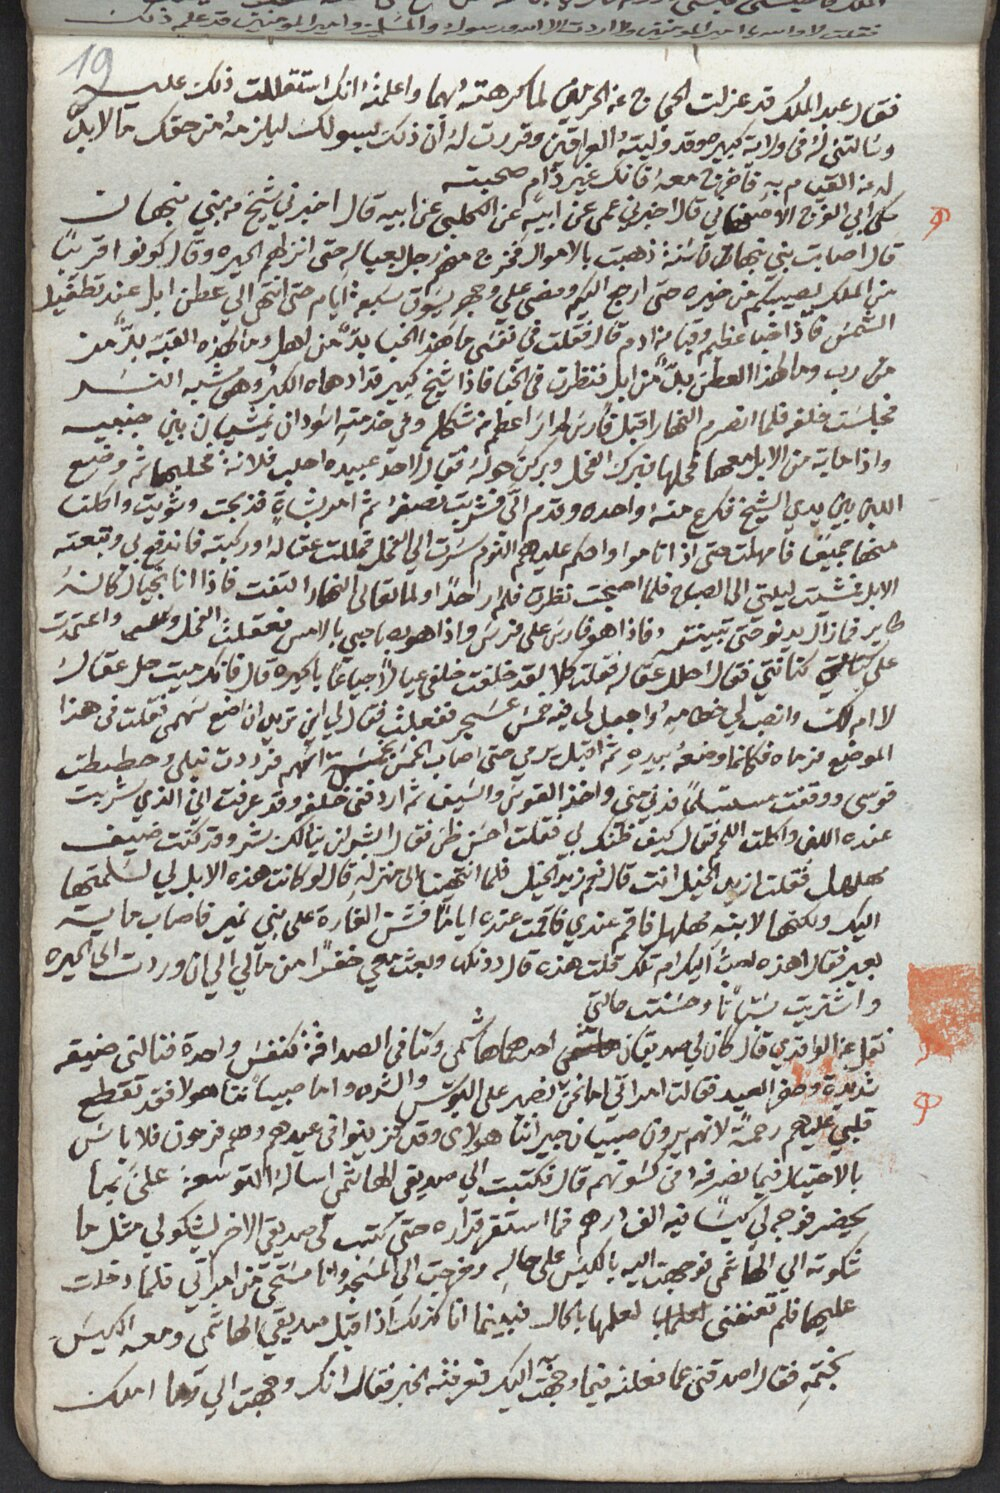 19
فقال عبد الملك قد عزلت الحجاج عن الحرمين لما كرهته لهما واعلمته انك استقللت ذلك عليه
وسالتني له في ولاية كبيره وقد وليته العراقين وقررت له ان ذلك بسولك ليلزمه من حقك ما لا بد
له من القيام به فاخرج معه فانك غير ذام صحبته
حكى ابي الفرج الاصبهاني قال اخبرني عمي عن ابيه عن الكلبي عن ابيه قال اخبرني شيخ من بني نبهان
قال اصابت بني نبهان سنة ذهبت بالاموال فخرج منهم رجل بعياله حتى انزلهم الحيره وقال كونوا قريبًا
من الملك يصيبكم من خيره حتى ارجع اليكم ومضى على وجهه يسوق سبعة ايام حتى انتهى الي عطن ابل عند تطفيل
الشمس فاذا خبا عظيم وقبا من ادم قال فقلت في نفسي ما لهذا الخبا بدٌ من اهل وما لهذه القبة بدٌ من
من رب وما لهذا العطن بدٌ من ابل فنظرت في الخبا فاذا شيخ كبير قد ادهاه الكبر وهو شبه النسر
فجلست خلفه فلما انصرم النهار اقبل فارس لم ار اعظم من شكله وفي خدمته اسودان يمشيان بين جنبيه
واذا مايه من الابل معها فحلها فبرك الفحل وبركن حوله فقال لاحد عبيده احلب فلانة فحلبها ثم وضع
اللبن بين يدي الشيخ فكرع منه واحده وقدم الى فشربت نصفه ثم امر بشاةٍ فذبحت وشويت واكلت
منها جميعًا فامهلت حتى اذا ناموا واحكم عليهم النوم سرت الي الفحل فحللت عقاله وركبته فاندفع بي وتبعته
الابل فمشيت ليلتي الى الصباح فلما اصبحت نظرت فلم ار احدًا ولما تعالى النهار التفت فاذا انا بخيال كانه
طاير فما زال يدنو حتى تبينته وفاذا هو فارس على فرس واذا هو صاحبي بالامس فعقلت الفحل واعتمدت
على كنانتي فقال احلل عقاله فقلت كلا لقد خلفت خلفي عيالًا جياعًا بالحيره قال فانك ميت حل عقاله
لا ام لك وانصب لي خطامه واجعل لي فيه خمس عُجَر ففعلت فقال لي اين تريد ان اضع سهمي فقلت في هذا
الموضع فرماه فكانما وضعه بيده ثم اقبل يرمي حتى اصاب الخمس بخمسة اسهم فرددت نبلي وحططت
قوسي ووقفت مستسلمًا فدني مني واخذ القوس والسيف ثم اردفني خلفه وقد عرفت اني الذي شربت
عنده اللبن واكلت اللحم فقال كيف ظنك بي فقلت احسن ظن فقال ابشر لن ينالك شر وقد كنت ضيف
مهلهل فقلت ازيد الخيل انت قال نعم زيد الخيل فلما انتهينا الى منزله قال لو كانت هذه الابل لي لسلمتها
اليك ولكنها لابنة مهلهل فاقم عندي فاقمت عنده ايامًا فشن الغارة على بني نمير فاصاب ماية
بعير فقال اهذه احب اليك ام تلك قلت هذه قال دونكها وبعث معي خفرًا من مالي الى ان وردت الى الحيره
واشتريت بستانًا وحسنت حالتي
نقل عن الواقدي قال كان لي صديقان احدهما هاشمي وكنا في الصداقة كنفس واحدة فنالتني ضيقه
شديدة وحضر العيد فقالت امراتي اما نحن نصبر على البوس والشده واما صبياننا هولا فقد تقطع
قلبي عليهم رحمة لانهم يرون صبيان جيراننا هولاى وقد تزينوا في عيدهم وهم فرحون فلا باس
بالاحتيال فيما نصرفه في كسوتهم قال فكتبت الي صديقي الهاشمي اساله التوسعة عليَّ بما
يحضر فوجه لي كيسًا فيه الف درهم فما استقر قراره حتى كتب الى صديقي الاخر يشكو لي مثل ما
شكوته الي الهاشمي فوجهت اليه بالكيس على حاله وخرجت الي المسجد وانا مستحي من امراتي فلما دخلت
عليها فلم تعنفني لعلمها بالحال فبينما انا كذلك اذ اقبل صديقي الهاشمي ومعه الكيس
بختمه فقال اصدقني عما فعلته فيما وجهت به اليك فعرفته الخبر فقال انك وجهت الي وما املك